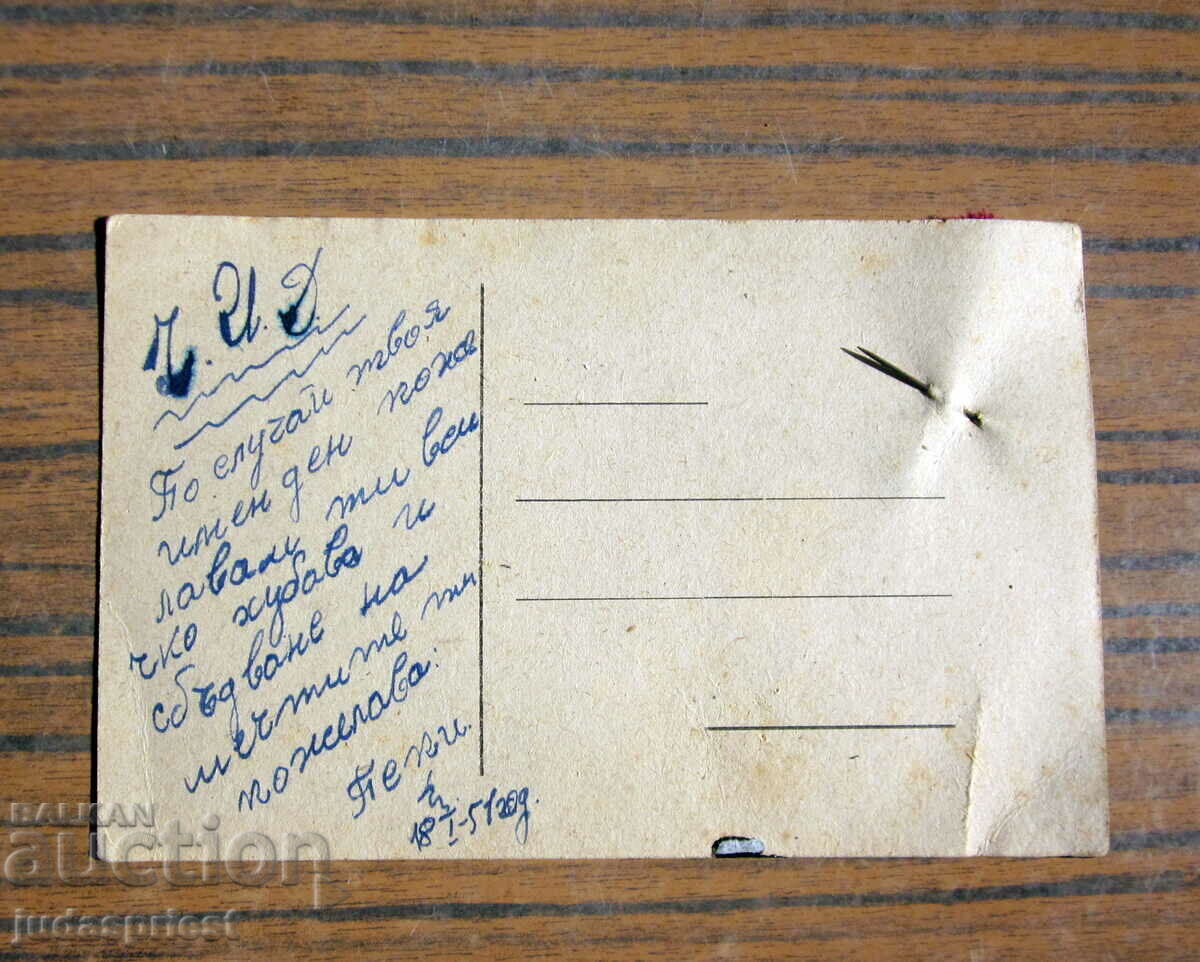 Ч.И.Д.
По случай твоя
имен ден поже
лавам ти вси
чко хубаво и
сбъдване на
мечтите ти
пожелава:
Пепи.
18/I-51 год.
BALKAN
auction
judaspriest